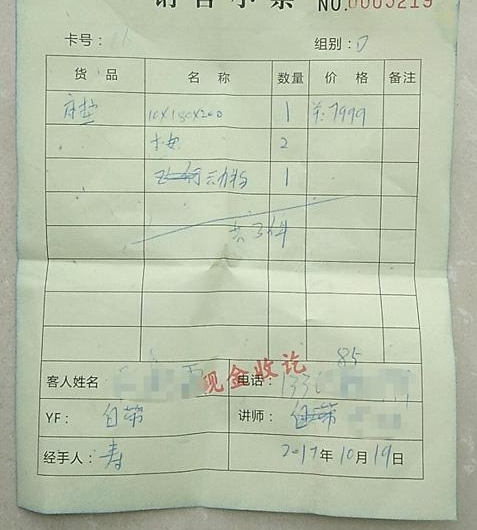 销售小票 NO.0005219
卡号： 组别：
货品 名称 数量 价格 备注
床垫 10×180×200 1 7999
2
1
共3件
现金收讫
客人姓名 电话：133 85
YF： 自带 讲师：自带
经手人：寿 2017年10月19日